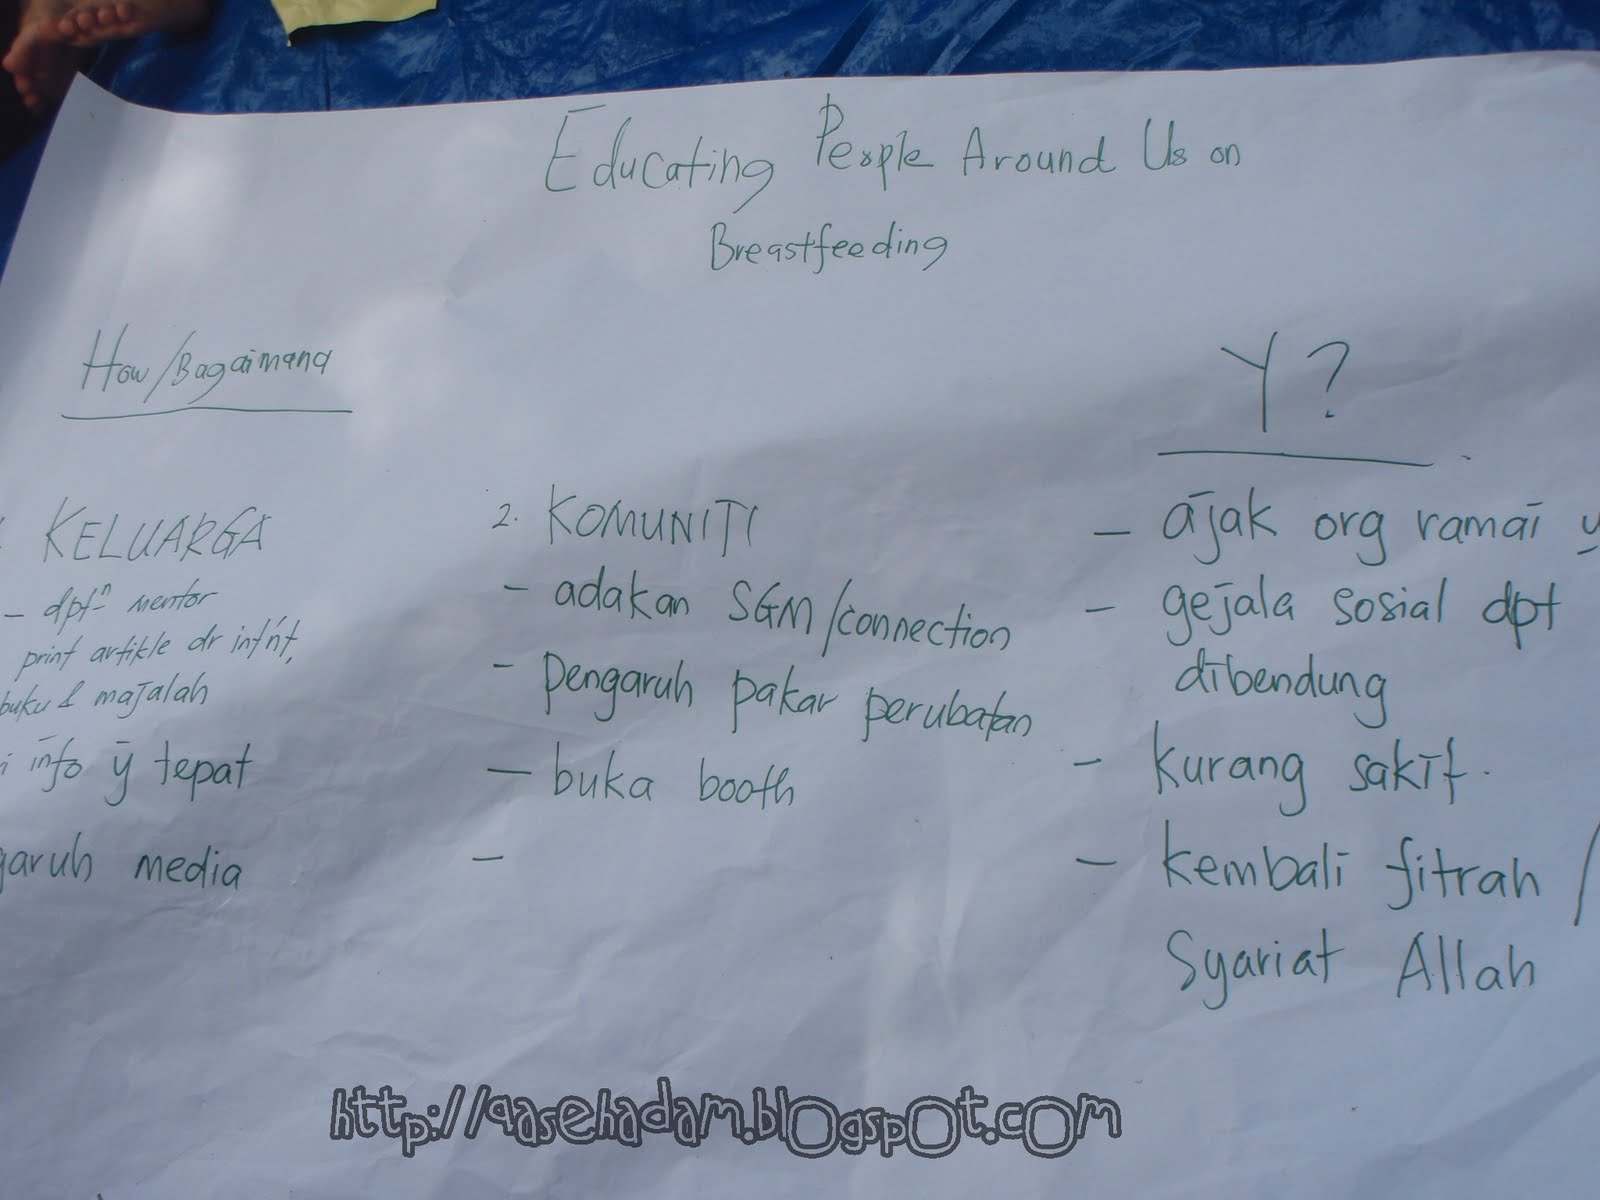 Educating People Around Us on
Breastfeeding
How/Bagaimana
KELUARGA
- dptn mentor
print artikle dr int'nt,
buku & majalah
info ȳ tepat
garuh media
2. KOMUNITI
- adakan SGM/connection
- pengaruh pakar perubatan
- buka booth
-
Y?
- ajak org ramai y
- gejala sosial dpt
dibendung
- kurang sakit.
- kembali fitrah /
Syariat Allah
http://qasehadam.blogspot.com